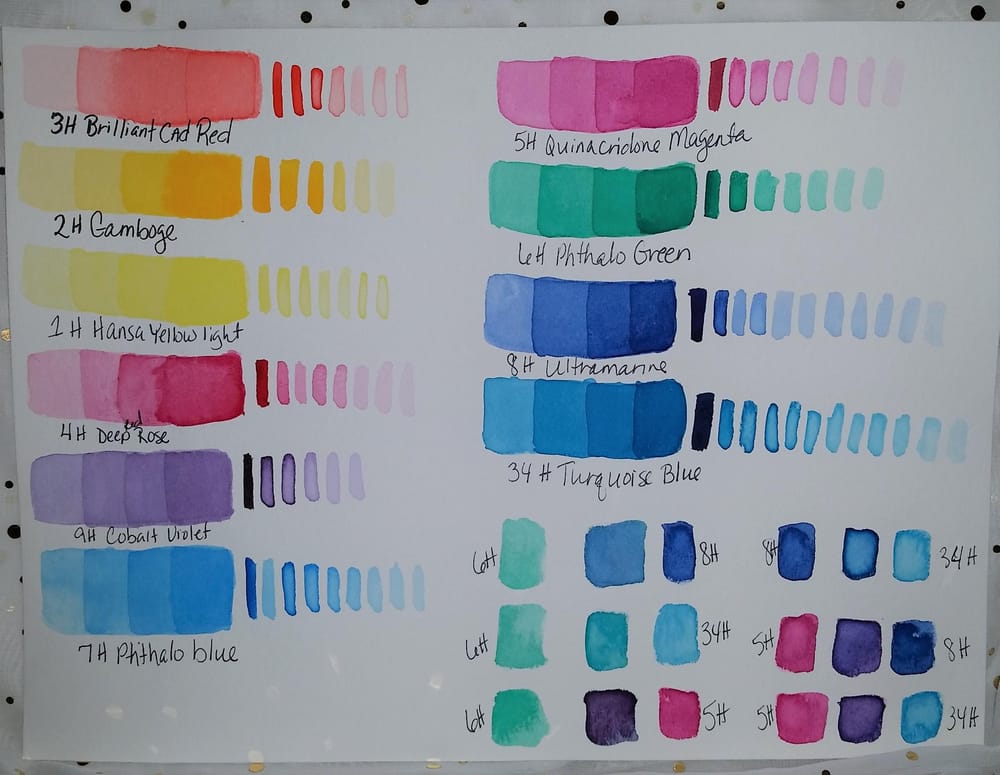 3H Brilliant Cad Red
2H Gamboge
1H Hansa Yellow light
4H Deep red Rose
9H Cobalt Violet
7H Phthalo blue
5H Quinacridone Magenta
6H Phthalo Green
8H Ultramarine
34H Turquoise Blue
6H 8H 8H 34H
6H 34H 5H 8H
6H 5H 5H 34H